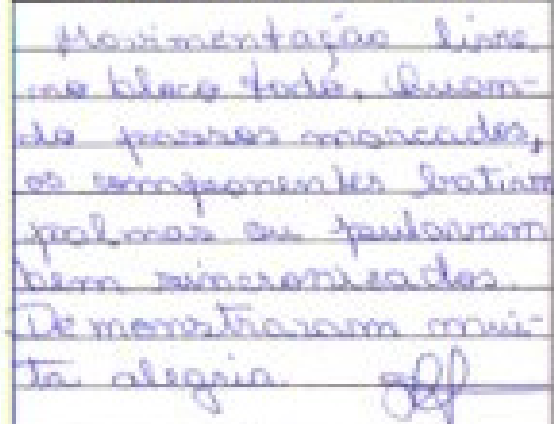 Movimentação livre
no bloco todo. Quan-
do passos marcados,
os componentes batiam
palmas ou pulavam
bem sincronizados.
Demonstraram mui-
ta alegria.